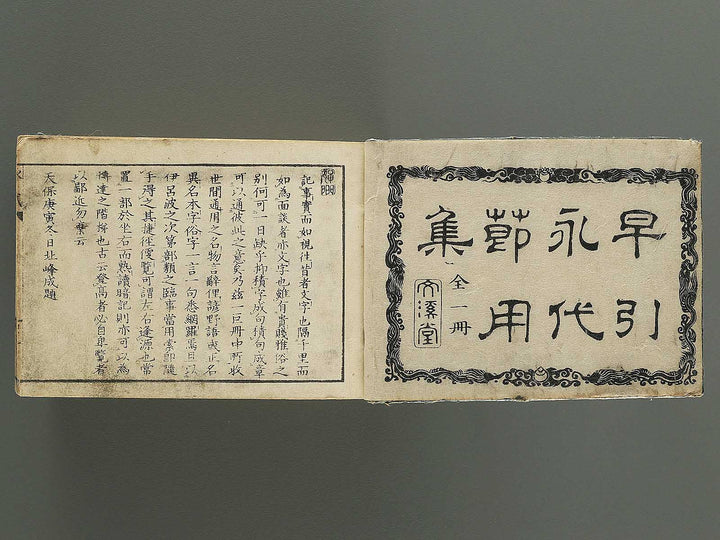 早引
永代
節用
集
全一冊
文溪堂
記事實而如視徃昔者文字也隔千里而
如為面談者亦文字也雖有貴賤雅俗之
別何可一日缺乎抑積字成句積句成章
可以通彼此之意矣乃茲一巨冊中所收
世間通用之名物言辭俚諺野語
異名本字俗字一言一句悉網羅焉且以
伊呂波之次第部類之臨事當用索即隨
手得之其捷徑優覧可謂左右逢源也常
置一部於坐右而熟讀暗記則亦可以為
達之階梯也古云登高者必自卑覧者
以鄙近勿棄云
天保庚寅冬日北峰成題